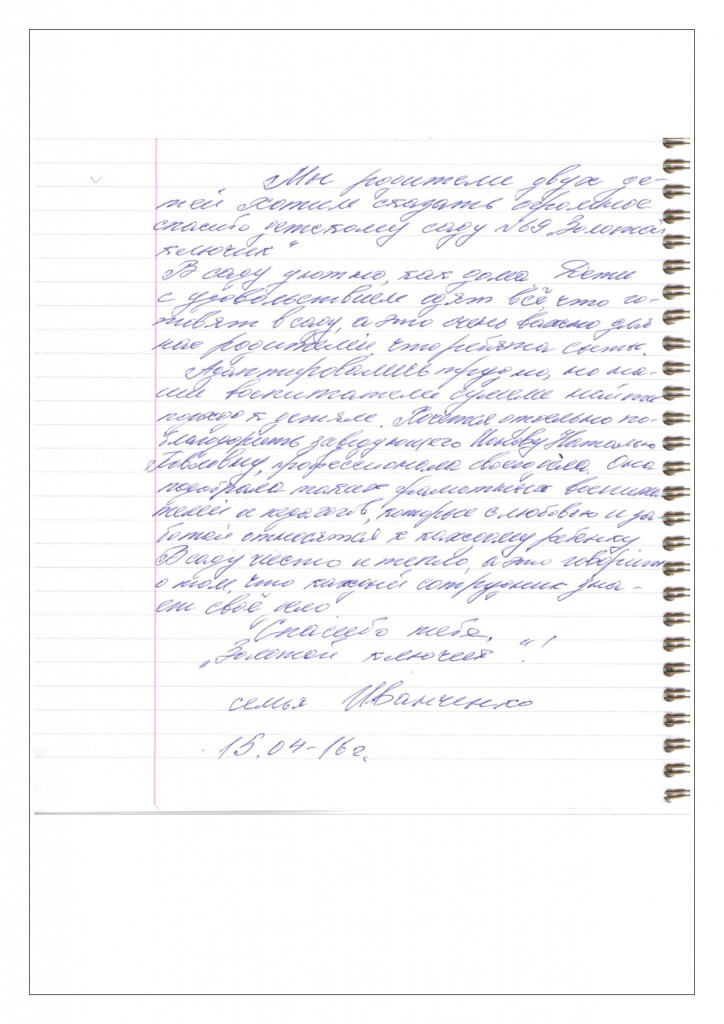 Мы родители двух де-
тей хотим сказать огромное
спасибо детскому саду №69 „Золотой
ключик“
В саду уютно, как дома. Дети
с удовольствием едят всё, что го-
товят в саду, а это очень важно для
нас родителей, что ребята сыты.
Адаптировались трудно, но на-
ши воспитатели сумели найти
подход к детям. Хочется отдельно по-
благодарить заведующего Наталью
Павловну, профессионала своего дела. Она
подобрала таких грамотных воспита-
телей и педагогов, которые с любовью и за-
ботой относятся к каждому ребенку
В саду чисто и тепло, а это говорит
о том, что каждый сотрудник зна-
ет своё дело
Спасибо тебе,
„Золотой ключик“!
семья Иванченко
15.04-16г.